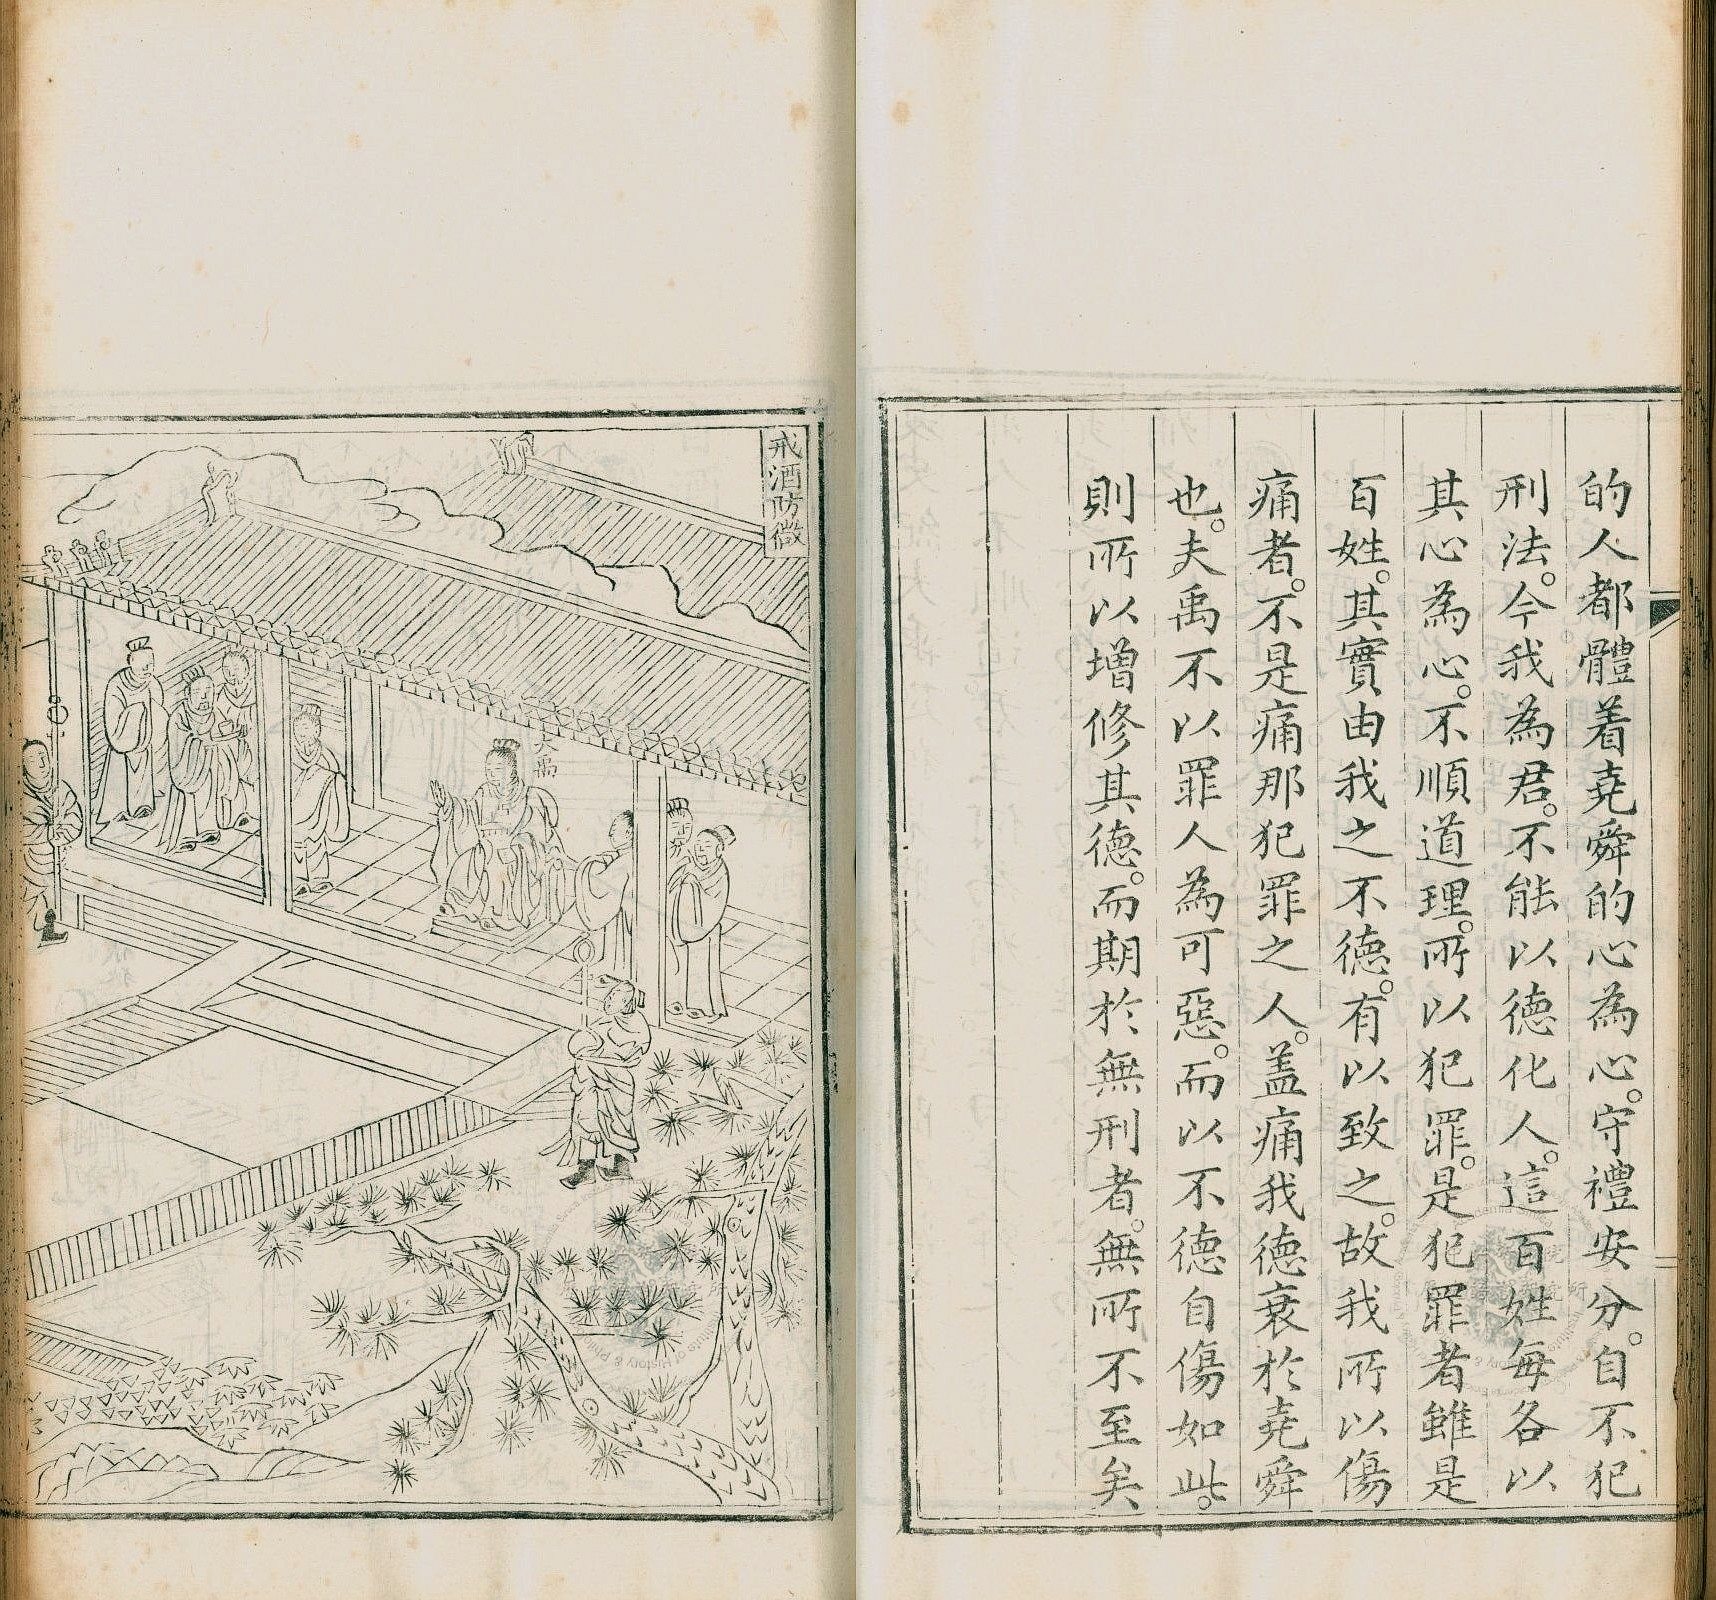 的人都體着堯舜的心為心。守禮安分。自不犯
刑法。今我為君。不能以德化人。這百姓每各以
其心為心。不順道理。所以犯罪。是犯罪者雖是
百姓。其實由我之不德。有以致之。故我所以傷
痛者。不是痛那犯罪之人。盖痛我德衰於堯舜
也。夫禹不以罪人為可惡。而以不德自傷如此。
則所以增修其德。而期於無刑者。無所不至矣
戒酒防微
大禹